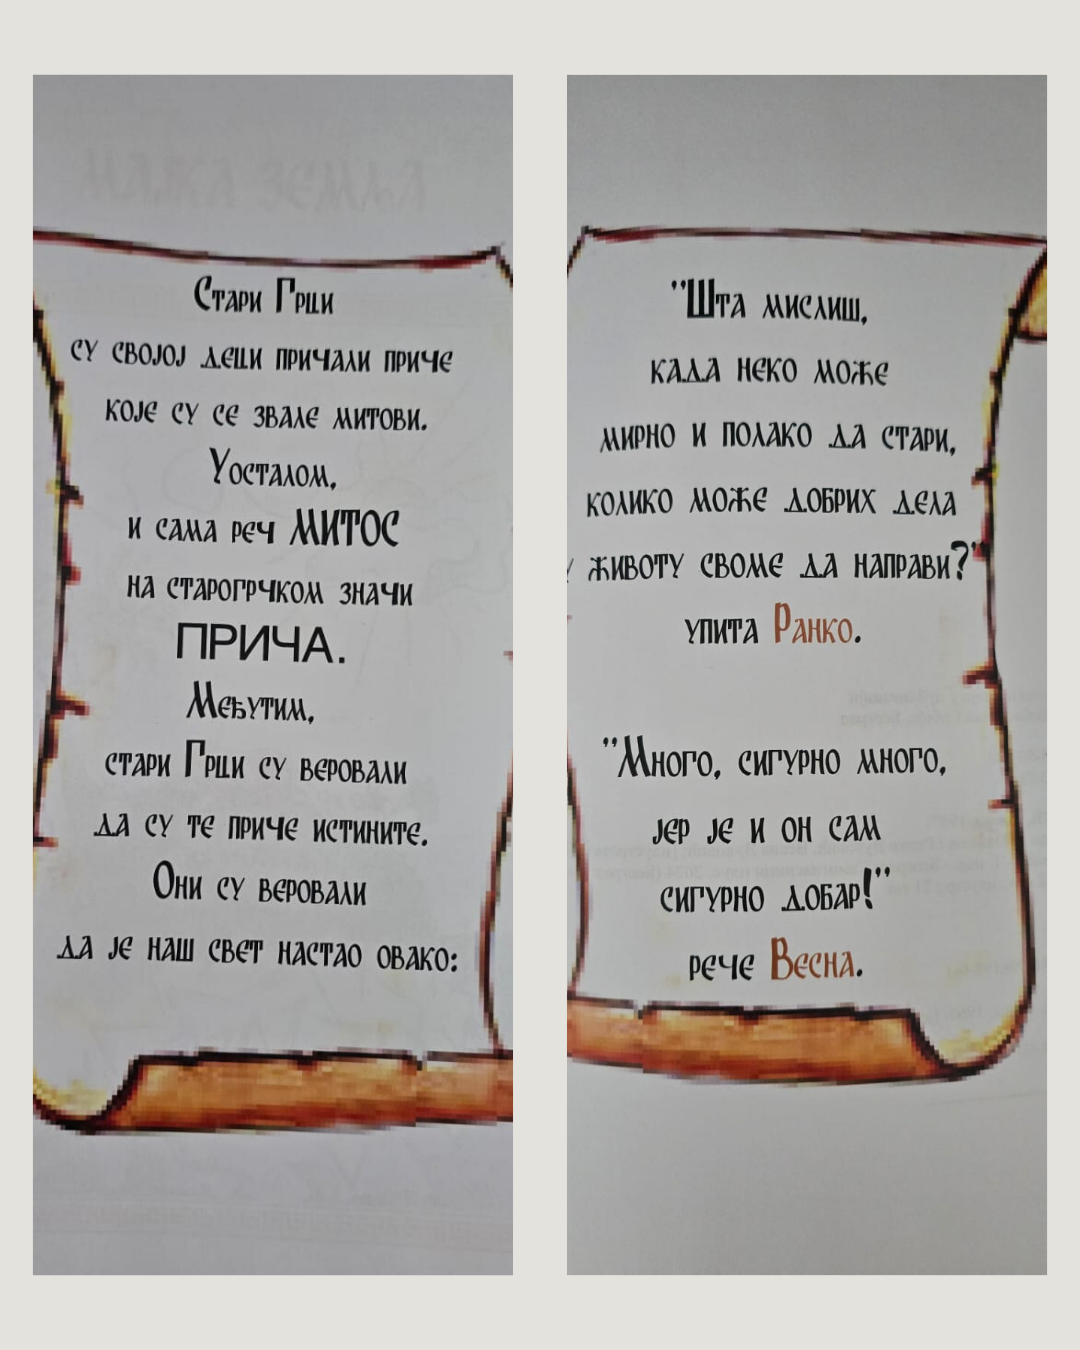 Стари Грци
су својој деци причали приче
које су се звале митови.
Уосталом,
и сама реч МИТОС
на старогрчком значи
ПРИЧА.
Међутим,
стари Грци су веровали
да су те приче истините.
Они су веровали
да је наш свет настао овако:
"Шта мислиш,
када неко може
мирно и полако да стари,
колико може добрих дела
у животу своме да направи?"
упита Ранко.
"Много, сигурно много,
јер је и он сам
сигурно добар!"
рече Весна.